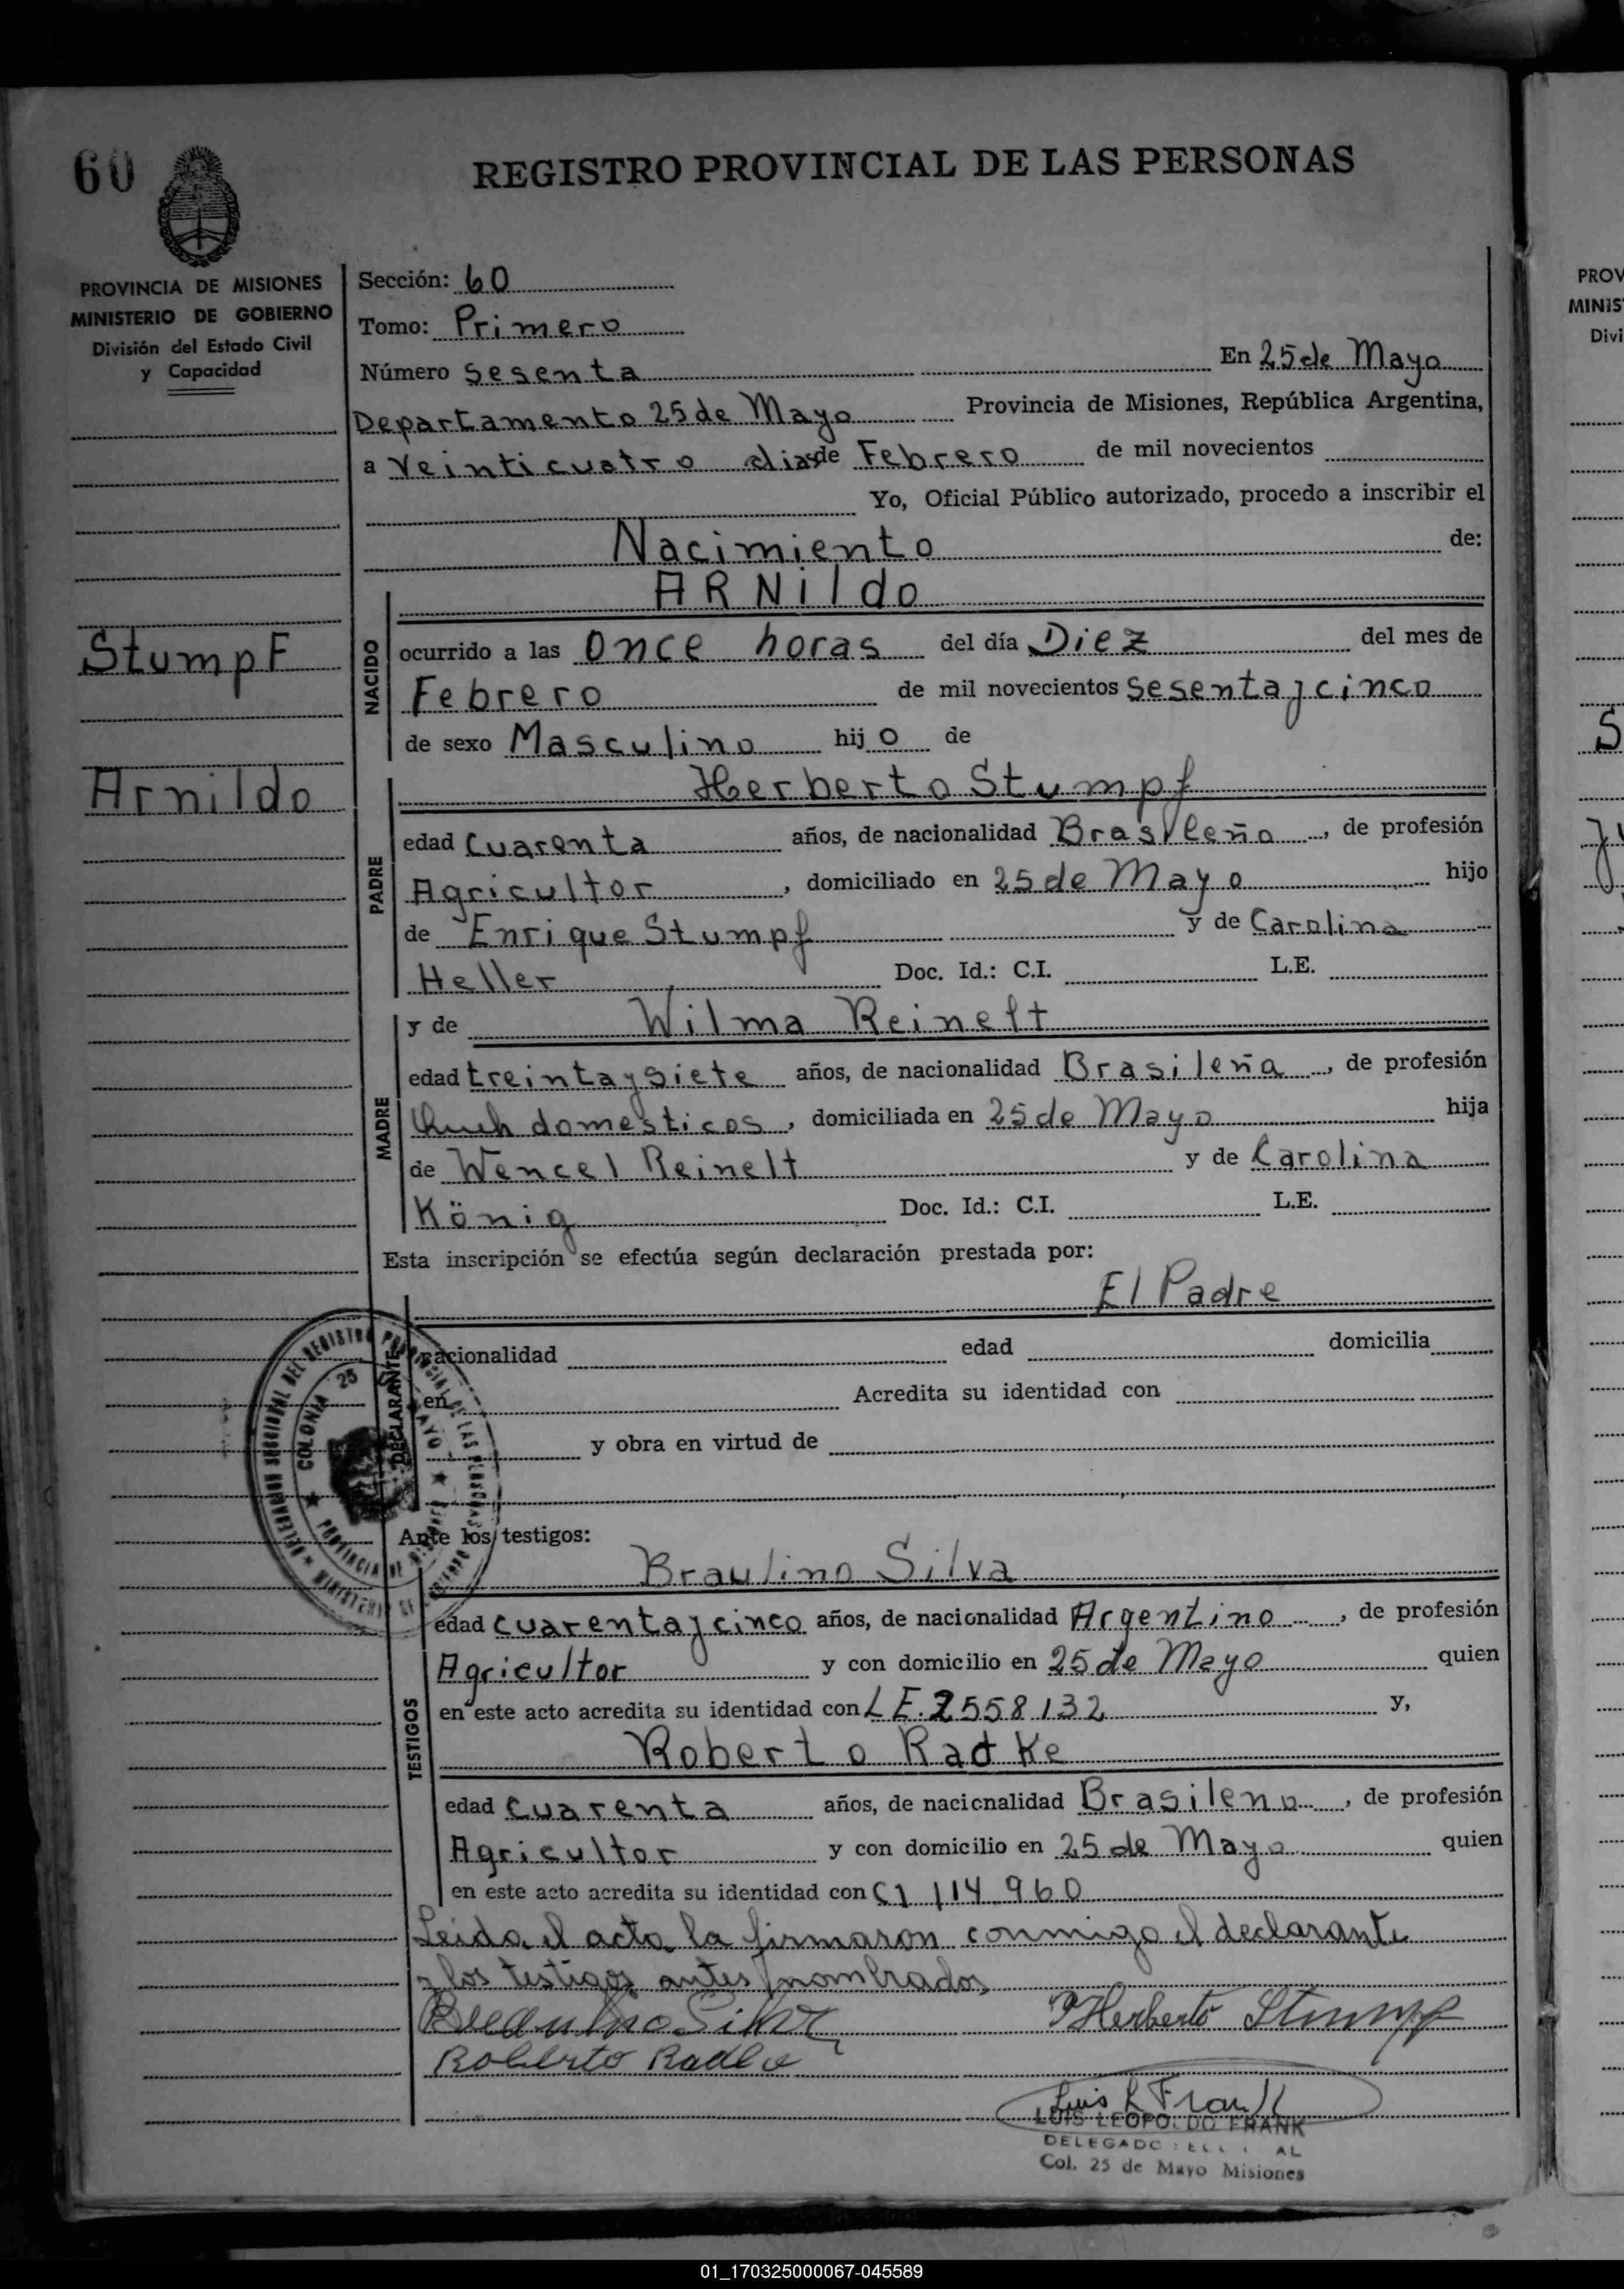 60
REGISTRO PROVINCIAL DE LAS PERSONAS
PROVINCIA DE MISIONES
MINISTERIO DE GOBIERNO
División del Estado Civil
y Capacidad
Sección: 60
Tomo: Primero
Número Sesenta En 25 de Mayo
Departamento 25 de Mayo Provincia de Misiones, República Argentina,
a Veinticuatro dias de Febrero de mil novecientos
Yo, Oficial Público autorizado, procedo a inscribir el
Nacimiento de:
ARNildo
Stumpf
Arnildo
NACIDO
ocurrido a las Once horas del día Diez del mes de
Febrero de mil novecientos Sesenta y cinco
de sexo Masculino hijo de
PADRE
Herberto Stumpf
edad Cuarenta años, de nacionalidad Brasileño, de profesión
Agricultor, domiciliado en 25 de Mayo hijo
de Enrique Stumpf y de Carolina
Heller Doc. Id.: C.I. L.E.
MADRE
y de Wilma Reinelt
edad treinta y siete años, de nacionalidad Brasileña, de profesión
domesticos, domiciliada en 25 de Mayo hija
de Wencel Reinelt y de Carolina
König Doc. Id.: C.I. L.E.
Esta inscripción se efectúa según declaración prestada por:
El Padre
DECLARANTE
nacionalidad edad domicilia
en Acredita su identidad con
y obra en virtud de
COLONIA 25 MAYO
PROVINCIA DE MISIONES
Ante los testigos:
TESTIGOS
Braulino Silva
edad cuarenta y cinco años, de nacionalidad Argentino, de profesión
Agricultor y con domicilio en 25 de Mayo quien
en este acto acredita su identidad con LE. 2558132 y,
Roberto Radke
edad Cuarenta años, de nacionalidad Brasileno, de profesión
Agricultor y con domicilio en 25 de Mayo quien
en este acto acredita su identidad con CI 114.960
Leida el acta la firmaron conmigo el declarante
y los testigos antes nombrados
Braulino Silva Herberto Stumpf
Roberto Radke
Luis L Frank
LUIS LEOPOLDO FRANK
DELEGADO
Col. 25 de Mayo Misiones
PROV
MINIS
Divi
01_170325000067-045589